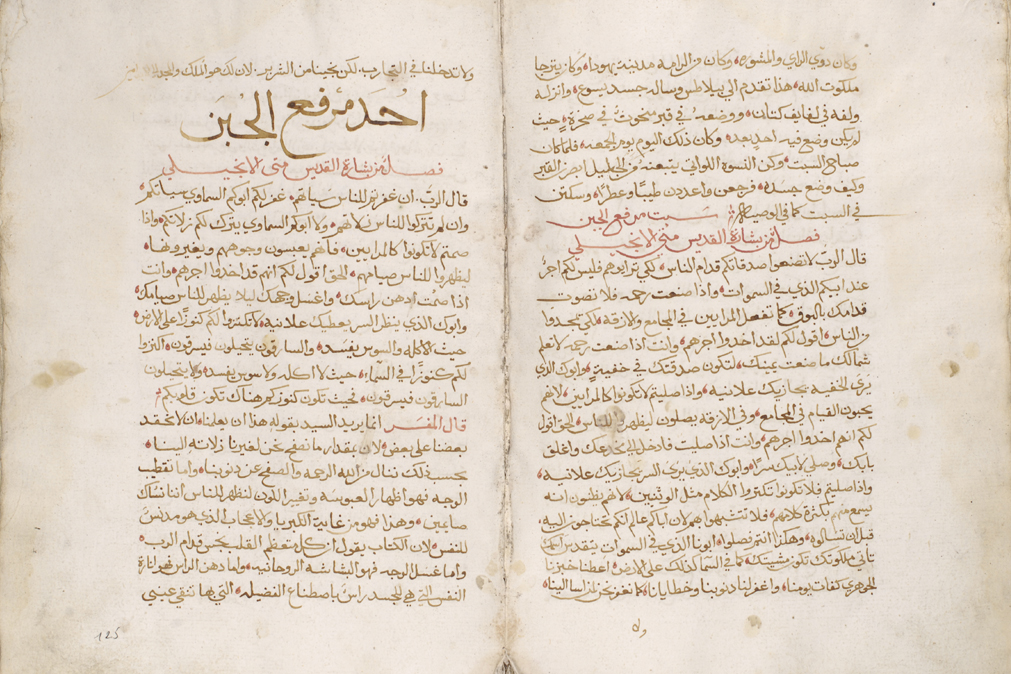 وكان ذوي الراي والمشوره وكان من الرامه مدينة يهودا وكان يترجا
ملكوت الله هذا تقدم الي بيلاطس وساله جسد يسوع وانزله
ولفه في لفايف كتان ووضعه في قبر منحوت في صخرة حيث
لم يكن وضع فيه احد بعد وكان ذلك اليوم يوم الجمعه فلما كان
صباح السبت وكن النسوه اللواتي يتبعنه من الجليل ابصرن القبر
وكيف وضع جسده فرجعن واعددن طيبا وعطرا وسكتن
في السبت كما في الوصيه سبت مرفع الجبن
فصل من بشارة القديس متى الانجيلي
قال الرب لا تصنعوا صدقاتكم قدام الناس لكي تراييوهم فليس لكم اجر
عند ابيكم الذي في السموات واذا صنعت رحمه فلا تصوت
قدامك بالبوق كما تفعل المرايين في المجامع والازقه لكي يمجدوا
من الناس اقول لكم لقد اخدوا اجرهم وانت اذا صنعت رحمه لا تعلم
شمالك ما صنعت يمينك لتكون صدقتك في خفيه وابوك الذي
يرى الخفيه يجازيك علانيه واذا صليتم لا تكونوا كالمرايين لانهم
يحبون القيام في المجامع وفي الازقه يصلون ليظهروا للناس الحق اقول
لكم انهم اخدوا اجرهم وانت اذا صليت فادخل الي مخدعك واغلق
بابك وصلي لابيك سرا وابوك الذي يرى السر يجازيك علانيه
واذا صليتم فلا تكونوا تكتروا الكلام مثل الوثنيين لانهم يظنون انه
يسمع منهم بكثرة كلامهم فلا تتشبهوا بهم لان اباكم عالم انكم تحتاجون اليه
قبل ان تسالوه وهكذا انتم فصلوا ابونا الذي في السموات يتقدس اسمك
تاتي ملكوتك تكون مشيتك كما في السما كذلك على الارض اعطنا خبزنا
الجوهري كفات يومنا واغفر لنا ذنوبنا وخطايانا كما نغفر نحن لمن اسا الينا
ولا
ولا تدخلنا في التجارب لكن نجينا من الشرير لان لك هو الملك والمجد امين
احد مرفع الجبن
فصل من بشارة القديس متى الانجيلي
قال الرب ان غفرتم للناس سياتهم غفر لكم ابوكم السماوي سياتكم
وان لم تتركوا للناس زلاتهم ولا ابوكم السماوي يترك لكم زلاتكم واذا
صمتم لا تكونوا كالمرايين فانهم يعبسون وجوههم ويغيرونها
ليظهروا للناس صيامهم الحق اقول لكم انهم قد اخدوا اجرهم وانت
اذا صمت ادهن راسك واغسل وجهك ليلا يظهر للناس صيامك
وابوك الذي ينظر السر يعطيك علانيه لا تكنزوا لكم كنوزا على الارض
حيث الاكله والسوس يفسد والسارقون يتحيلون فيسرقون اكنزوا
لكم كنوزا في السماء حيث لا اكله ولا سوس يفسد ولا يتحيلون
السارقون فيسرقون فحيث تكون كنوزكم هناك تكون قلوبكم
قال المفسر انما يريد السيد بقوله هذا ان يعلمنا ان لا نحقد
بعضنا على بعض لان بقدار ما نصفح نحن لغيرنا زلاته الينا
بحسب ذلك ننال من الله الرحمه والصفح عن ذنوبنا واما تقطيب
الوجه فهو اظهار العبوسه وتغيير اللون لنظهر للناس اننا نساك
صايمين وهذا فهو من غاية الكبريا والاعجاب الذي هو مدنس
للنفس لان الكتاب يقول ان كل متعظم القلب نجس قدام الرب
واما غسل الوجه فهو البشاشه الروحانيه واما دهن الراس فهو انارة
النفس التي هي للجسد راس باصطناع الفضيله التي بها تنقي عيني
125